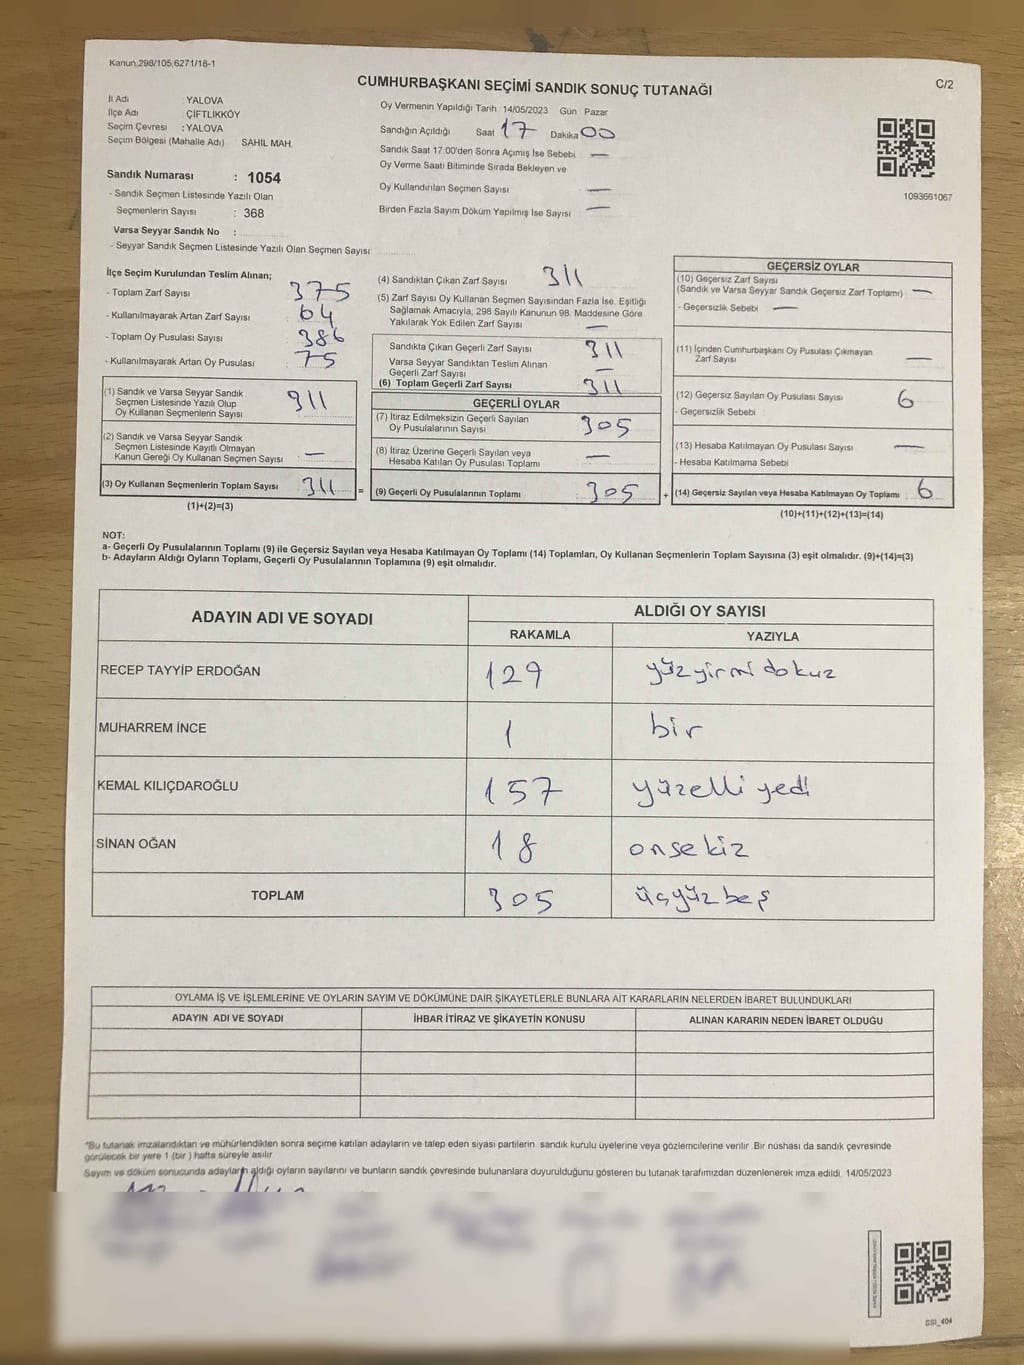 Kanun 298/105,6271/18-1
CUMHURBAŞKANI SEÇİMİ SANDIK SONUÇ TUTANAĞI
C/2
İl Adı YALOVA
İlçe Adı ÇİFTLİKKÖY
Seçim Çevresi : YALOVA
Seçim Bölgesi (Mahalle Adı) SAHİL MAH.
Sandık Numarası : 1054
- Sandık Seçmen Listesinde Yazılı Olan
Seçmenlerin Sayısı : 368
Varsa Seyyar Sandık No :
- Seyyar Sandık Seçmen Listesinde Yazılı Olan Seçmen Sayısı
Oy Vermenin Yapıldığı Tarih 14/05/2023 Gün Pazar
Sandığın Açıldığı Saat 17 Dakika 00
Sandık Saat 17:00'den Sonra Açımış İse Sebebi —
Oy Verme Saati Bitiminde Sırada Bekleyen ve
Oy Kullandırılan Seçmen Sayısı —
Birden Fazla Sayım Döküm Yapılmış İse Sayısı —
1093661067
İlçe Seçim Kurulundan Teslim Alınan;
- Toplam Zarf Sayısı 375
- Kullanılmayarak Artan Zarf Sayısı 64
- Toplam Oy Pusulası Sayısı 386
- Kullanılmayarak Artan Oy Pusulası 75
(1) Sandık ve Varsa Seyyar Sandık
Seçmen Listesinde Yazılı Olup
Oy Kullanan Seçmenlerin Sayısı 311
(2) Sandık ve Varsa Seyyar Sandık
Seçmen Listesinde Kayıtlı Olmayan
Kanun Gereği Oy Kullanan Seçmen Sayısı —
(3) Oy Kullanan Seçmenlerin Toplam Sayısı 311 =
(1)+(2)=(3)
(4) Sandıktan Çıkan Zarf Sayısı 311
(5) Zarf Sayısı Oy Kullanan Seçmen Sayısından Fazla İse, Eşitliği
Sağlamak Amacıyla, 298 Sayılı Kanunun 98. Maddesine Göre
Yakılarak Yok Edilen Zarf Sayısı —
Sandıkta Çıkan Geçerli Zarf Sayısı 311
Varsa Seyyar Sandıktan Teslim Alınan
Geçerli Zarf Sayısı —
(6) Toplam Geçerli Zarf Sayısı 311
GEÇERLİ OYLAR
(7) İtiraz Edilmeksizin Geçerli Sayılan
Oy Pusulalarının Sayısı 305
(8) İtiraz Üzerine Geçerli Sayılan veya
Hesaba Katılan Oy Pusulası Toplamı —
(9) Geçerli Oy Pusulalarının Toplamı 305 +
GEÇERSİZ OYLAR
(10) Geçersiz Zarf Sayısı
(Sandık ve Varsa Seyyar Sandık Geçersiz Zarf Toplamı) —
- Geçersizlik Sebebi —
(11) İçinden Cumhurbaşkanı Oy Pusulası Çıkmayan
Zarf Sayısı —
(12) Geçersiz Sayılan Oy Pusulası Sayısı 6
- Geçersizlik Sebebi
(13) Hesaba Katılmayan Oy Pusulası Sayısı —
- Hesaba Katılmama Sebebi
(14) Geçersiz Sayılan veya Hesaba Katılmayan Oy Toplamı 6
(10)+(11)+(12)+(13)=(14)
NOT:
a- Geçerli Oy Pusulalarının Toplamı (9) ile Geçersiz Sayılan veya Hesaba Katılmayan Oy Toplamı (14) Toplamları, Oy Kullanan Seçmenlerin Toplam Sayısına (3) eşit olmalıdır. (9)+(14)=(3)
b- Adayların Aldığı Oyların Toplamı, Geçerli Oy Pusulalarının Toplamına (9) eşit olmalıdır.
ADAYIN ADI VE SOYADI ALDIĞI OY SAYISI
RAKAMLA YAZIYLA
RECEP TAYYİP ERDOĞAN 129 yüzyirmi dokuz
MUHARREM İNCE 1 bir
KEMAL KILIÇDAROĞLU 157 yüzelli yedi
SİNAN OĞAN 18 onsekiz
TOPLAM 305 üçyüz beş
OYLAMA İŞ VE İŞLEMLERİNE VE OYLARIN SAYIM VE DÖKÜMÜNE DAİR ŞİKAYETLERLE BUNLARA AİT KARARLARIN NELERDEN İBARET BULUNDUKLARI
ADAYIN ADI VE SOYADI İHBAR İTİRAZ VE ŞİKAYETİN KONUSU ALINAN KARARIN NEDEN İBARET OLDUĞU
*Bu tutanak imzalandıktan ve mühürlendikten sonra seçime katılan adayların ve talep eden siyasi partilerin sandık kurulu üyelerine veya gözlemcilerine verilir. Bir nüshası da sandık çevresinde
görülecek bir yere 1 (bir ) hafta süreyle asılır
Sayım ve döküm sonucunda adayların aldığı oyların sayılarını ve bunların sandık çevresinde bulunanlara duyurulduğunu gösteren bu tutanak tarafımızdan düzenlenerek imza edildi. 14/05/2023
SSI_404